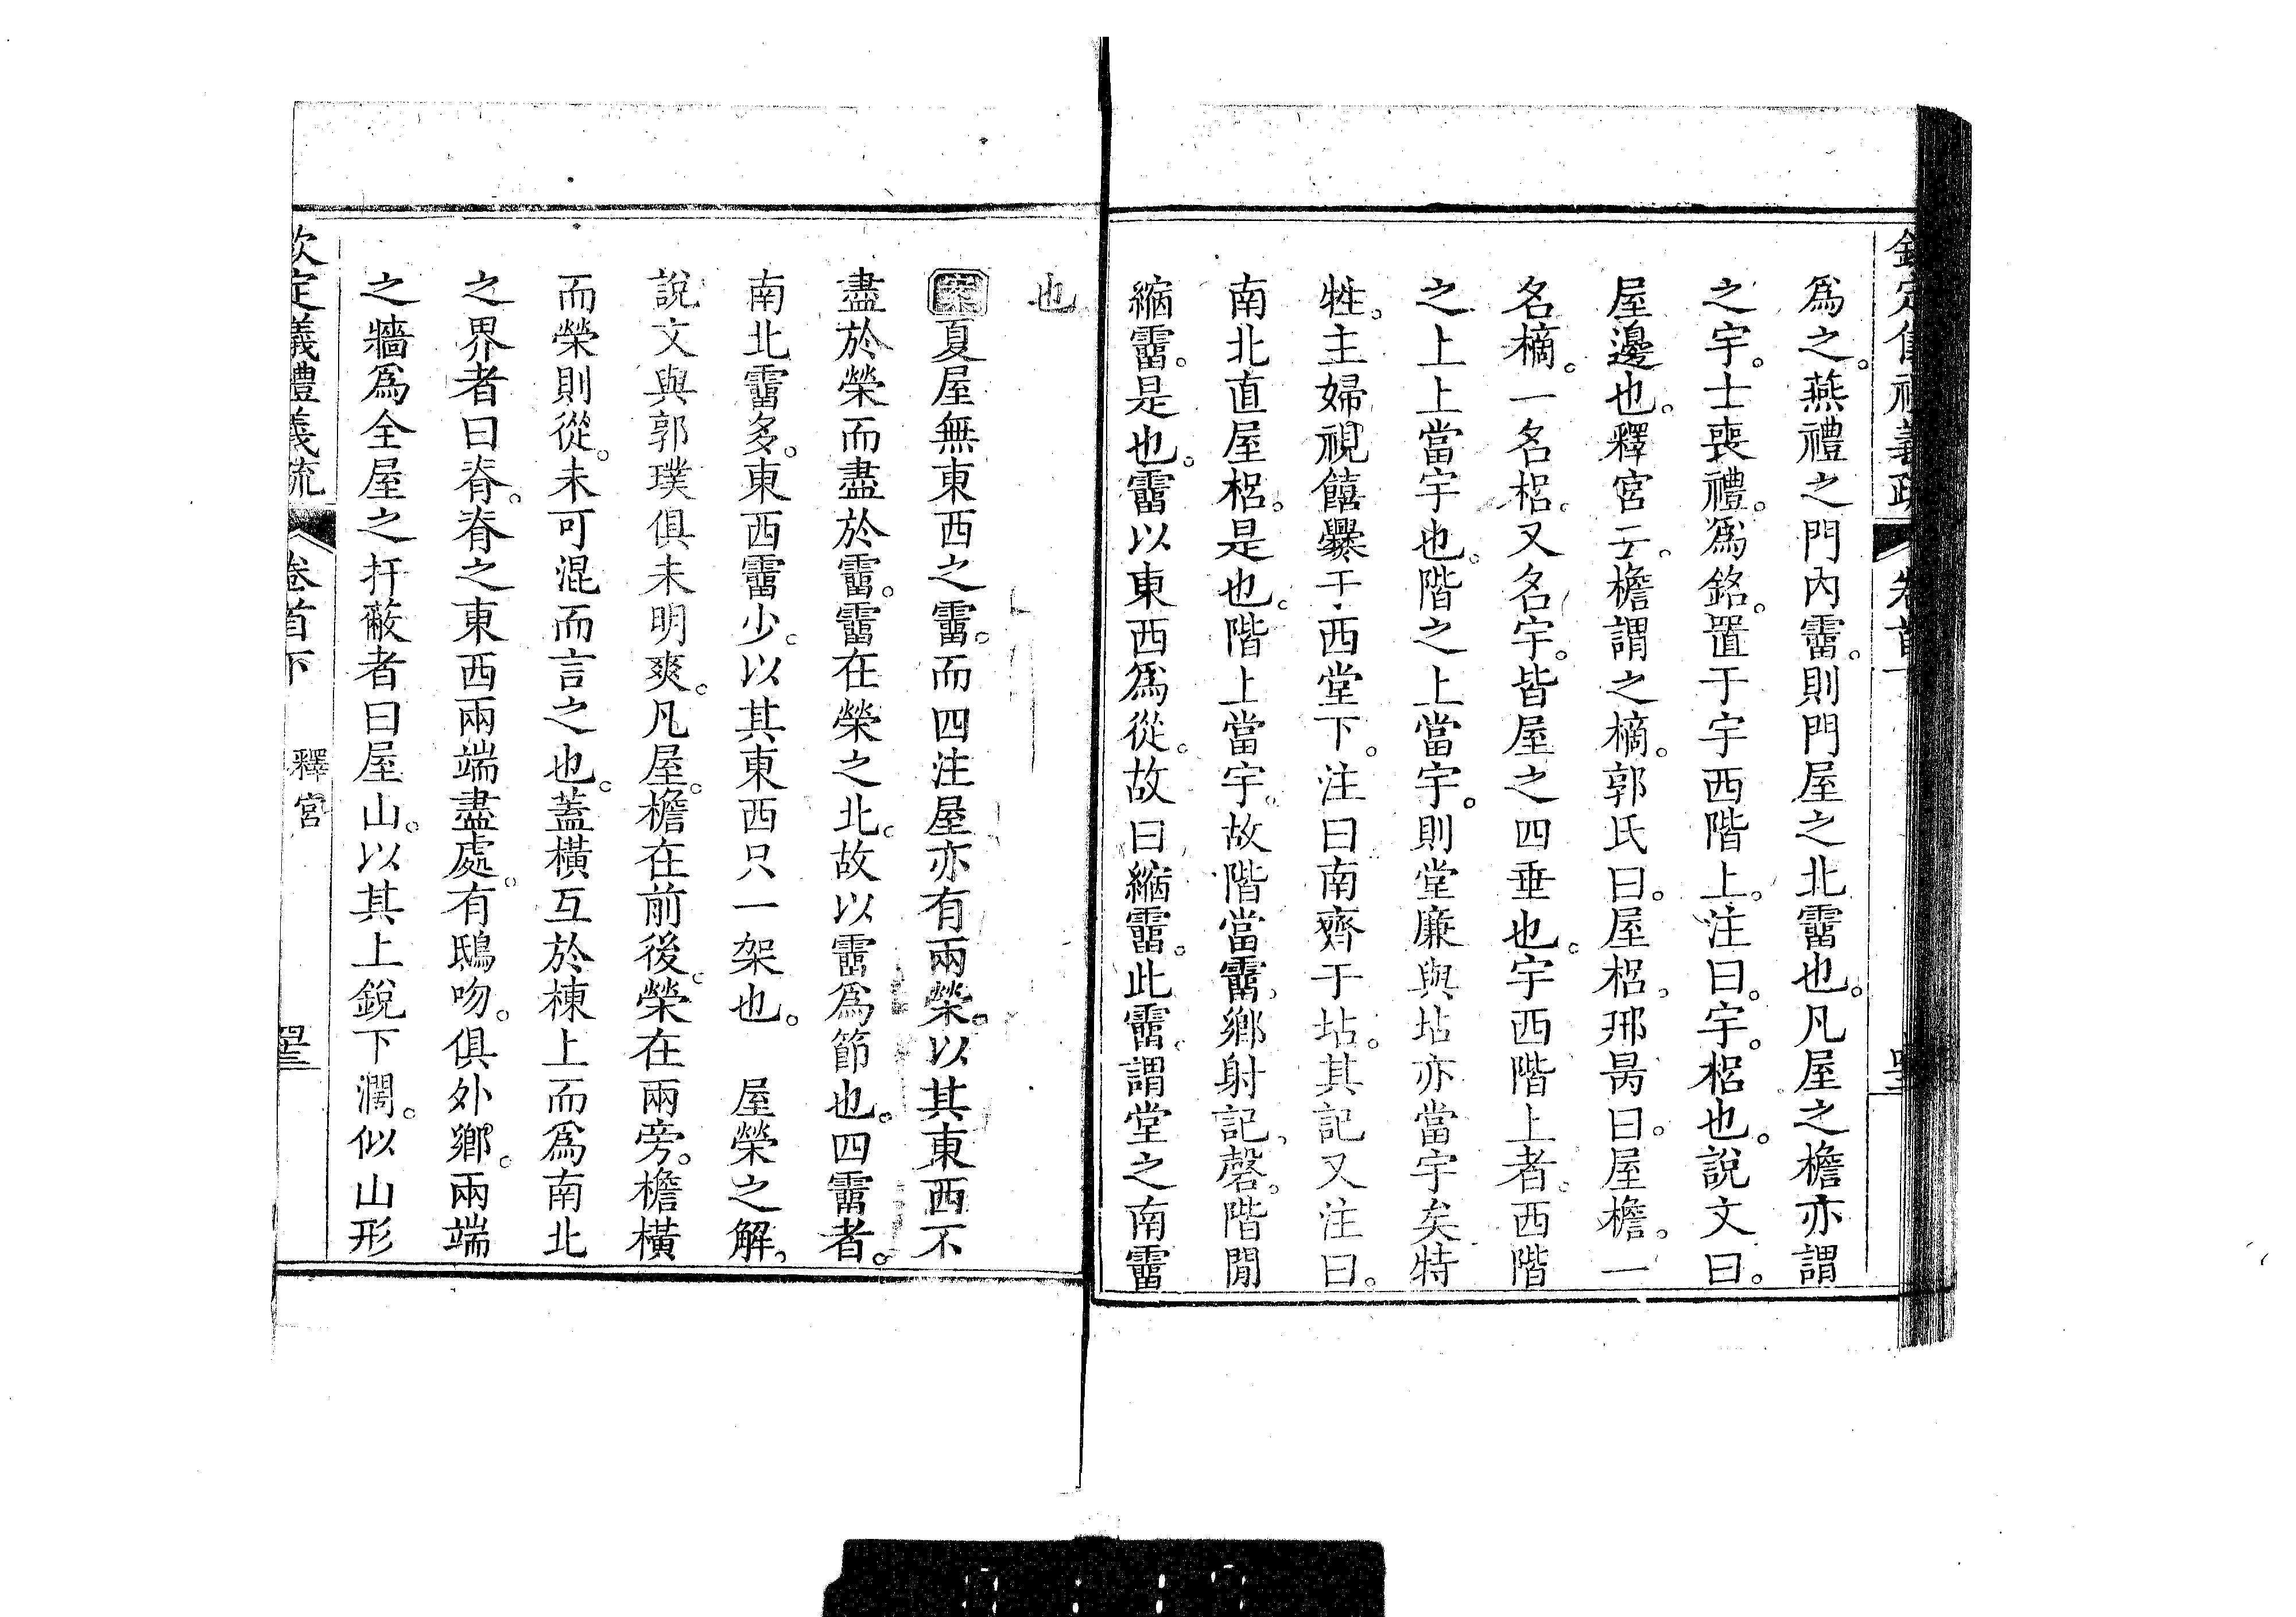 爲之。燕禮之門內霤。則門屋之北霤也。凡屋之檐亦謂
之宇。士喪禮。爲銘。置于宇西階上。注曰。宇。梠也。說文曰。
屋邊也。釋宮云。檐謂之樀。郭氏曰。屋梠。邢昺曰。屋檐。一
名樀。一名梠。又名宇。皆屋之四垂也。宇西階上者。西階
之上上當宇也。階之上當宇。則堂廉與坫亦當宇矣特
牲。主婦視饎爨于西堂下。注曰南齊于坫。其記又注曰。
南北直屋梠。是也。階上當宇。故階當霤。鄉射記、磬。階閒
縮霤。是也。霤以東西爲從。故曰縮霤。此霤。謂堂之南霤
也
案夏屋無東西之霤。而四注屋亦有兩榮。以其東西不
盡於榮而盡於霤。霤在榮之北。故以霤爲節也。四霤者。
南北霤多。東西霤少。以其東西只一架也。 屋榮之解。
說文與郭璞俱未明爽。凡屋。檐在前後。榮在兩旁。檐橫
而榮則從。未可混而言之也。蓋橫互於棟上而爲南北
之界者曰脊。脊之東西兩端盡處。有鴟吻。俱外鄉。兩端
之牆爲全屋之扞蔽者曰屋山。以其上銳下濶。似山形
欽定儀禮義疏 卷首下 釋宮